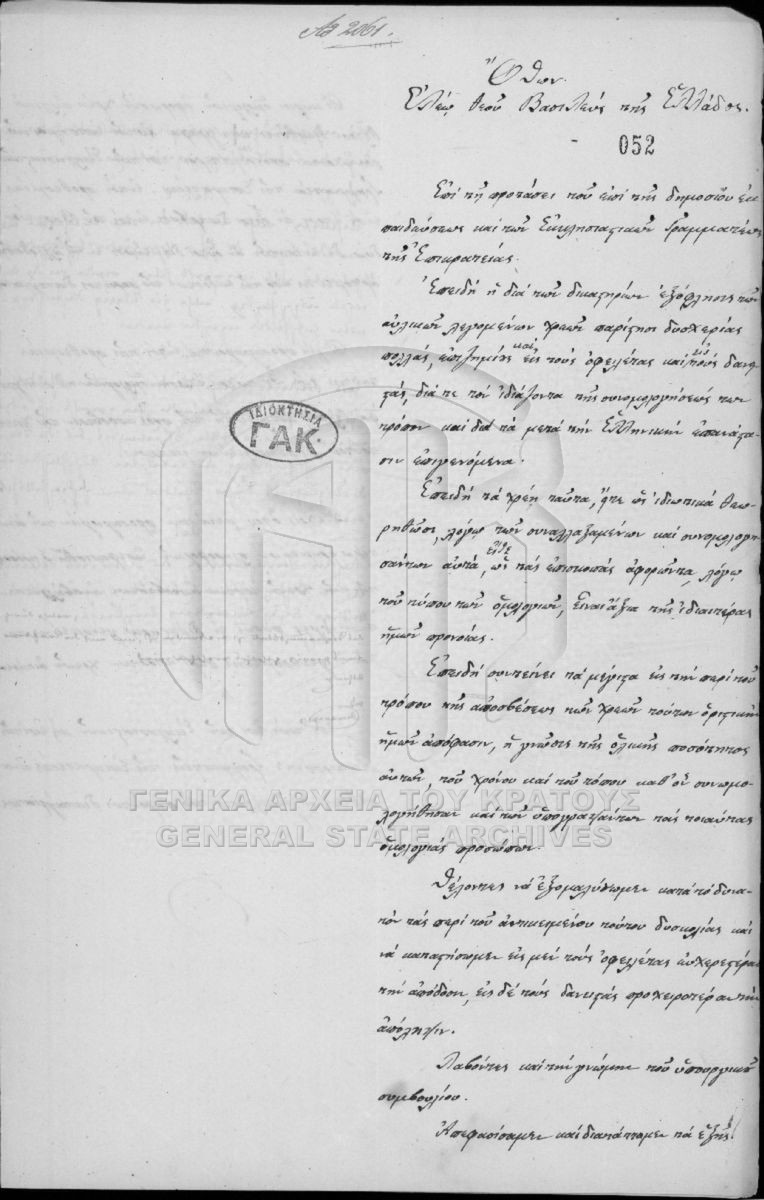 Αβ 2061.
Ὄθων.
Ἐλέῳ θεοῦ Βασιλεὺς τῆς Ἑλλάδος.
052
Ἐπὶ τῇ προτάσει τοῦ ἐπὶ τῆς δημοσίου ἐκ-
παιδεύσεως καὶ τῶν Ἐκκλησιαστικῶν Γραμματέως
τῆς Ἐπικρατείας.
Ἐπειδὴ ἡ διὰ τῶν δικαστηρίων ἐξόφλησις τῶν
αὐλικῶν λεγομένων χρεῶν παρίστησι δυσχερείας
πολλάς, ἐπιζημίους καὶ εἰς τοὺς ὀφειλέτας καὶ εἰς τοὺς δανει-
στάς, διά τε τὸν ἰδιάζοντα τῆς συνομολογήσεώς των
τρόπον καὶ διὰ τὰ μετὰ τὴν Ἑλληνικὴν ἐπανάστα-
σιν ἐπιγενόμενα.
Ἐπειδὴ τὰ χρέη ταῦτα, ἤτε ὡς ἰδιωτικὰ θεω-
ρηθῶσι, λόγῳ τῶν συναλλαξαμένων καὶ συνομολογη-
σάντων αὐτά, εἴτε ὡς τὰς ἐπισκοπὰς ἀφορῶντα, λόγῳ
τοῦ τύπου τῶν ὁμολογιῶν, εἶναι ἄξια τῆς ἰδιαιτέρας
ἡμῶν προνοίας.
Ἐπειδὴ συντείνει τὰ μέγιστα εἰς τὴν περὶ τοῦ
τρόπου τῆς ἀποσβέσεως τῶν χρεῶν τούτων ὁριστικὴν
ἡμῶν ἀπόφασιν, ἡ γνῶσις τῆς ὁλικῆς ποσότητος
αὐτῶν, τοῦ χρόνου καὶ τοῦ τόπου καθ' ὃν συνωμο-
λογήθησαν καὶ τῶν ὑπογραψάντων τὰς τοιαύτας
ὁμολογίας προσώπων.
Θέλοντες νὰ ἐξομαλύνωμεν κατὰ τὸ δυνα-
τὸν τὰς περὶ τοῦ ἀντικειμένου τούτου δυσκολίας καὶ
νὰ καταστήσωμεν εἰς μὲν τοὺς ὀφειλέτας εὐχερεστέραν
τὴν ἀπόδοσιν, εἰς δὲ τοὺς δανειστὰς προχειροτέραν τὴν
ἀπόληψιν.
Λαβόντες καὶ τὴν γνώμην τοῦ ὑπουργικοῦ
συμβουλίου.
Ἀπεφασίσαμεν καὶ διατάττομεν τὰ ἑξῆς:
ΙΔΙΟΚΤΗΣΙΑ
ΓΑΚ
ΓΕΝΙΚΑ ΑΡΧΕΙΑ ΤΟΥ ΚΡΑΤΟΥΣ
GENERAL STATE ARCHIVES